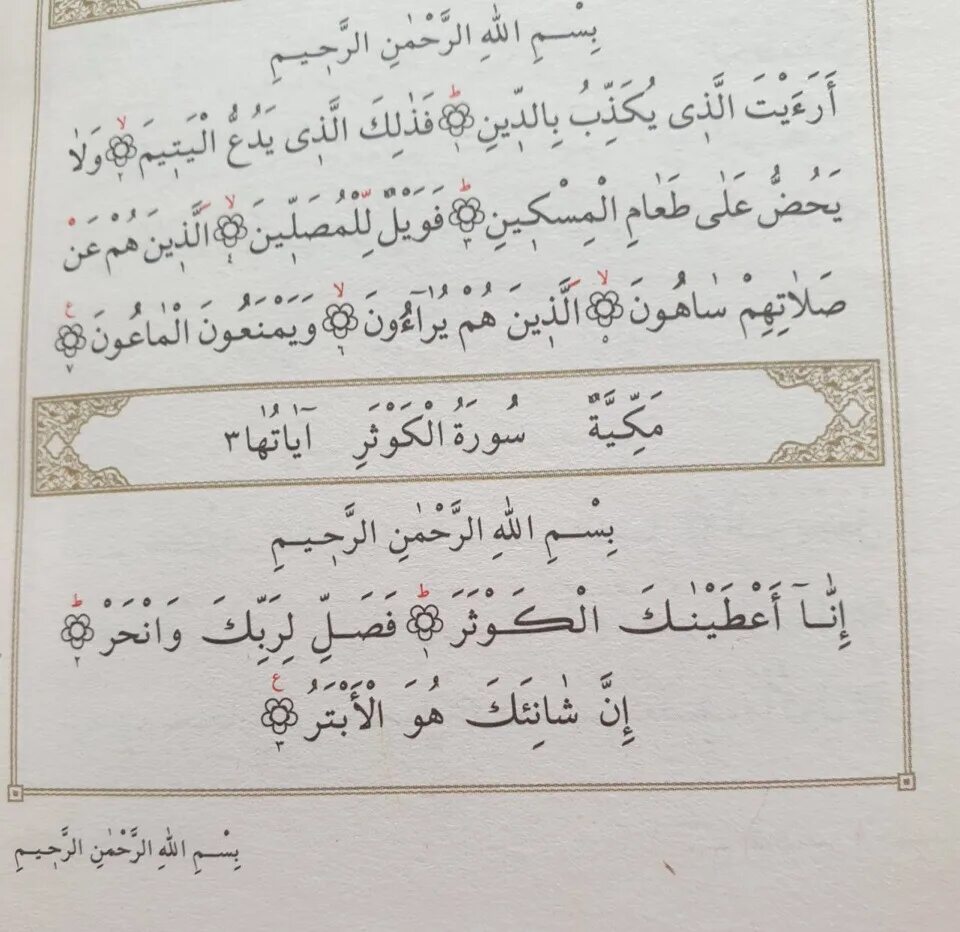 بِسْمِ اللّٰهِ الرَّحْمٰنِ الرَّحٖيمِ
أَرَءَيْتَ الَّذٖى يُكَذِّبُ بِالدّٖينِ ؕ ١ فَذٰلِكَ الَّذٖى يَدُعُّ الْيَتٖيمَ ۙ ٢ وَلَا
يَحُضُّ عَلٰى طَعَامِ الْمِسْكٖينِ ؕ ٣ فَوَيْلٌ لِلْمُصَلّٖينَ ۙ ٤ اَلَّذٖينَ هُمْ عَنْ
صَلَاتِهِمْ سَاهُونَ ۙ ٥ اَلَّذٖينَ هُمْ يُرَٓاءُونَ ۙ ٦ وَيَمْنَعُونَ الْمَاعُونَ ع ٧
مَكِّيَّةٌ سُورَةُ الْكَوْثَرِ اٰيَاتُهَا ٣
بِسْمِ اللّٰهِ الرَّحْمٰنِ الرَّحٖيمِ
إِنَّٓا أَعْطَيْنٰكَ الْكَوْثَرَ ؕ ١ فَصَلِّ لِرَبِّكَ وَانْحَرْ ؕ ٢
إِنَّ شَانِئَكَ هُوَ الْأَبْتَرُ ع ٣
بِسْمِ اللّٰهِ الرَّحْمٰنِ الرَّحٖيمِ